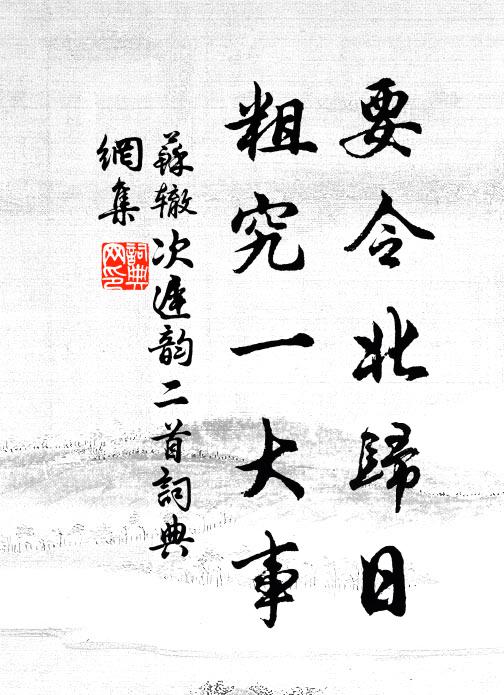 要令北歸日
粗究一大事
蘇轍次遲韵二首詞典
網集
詞典网印